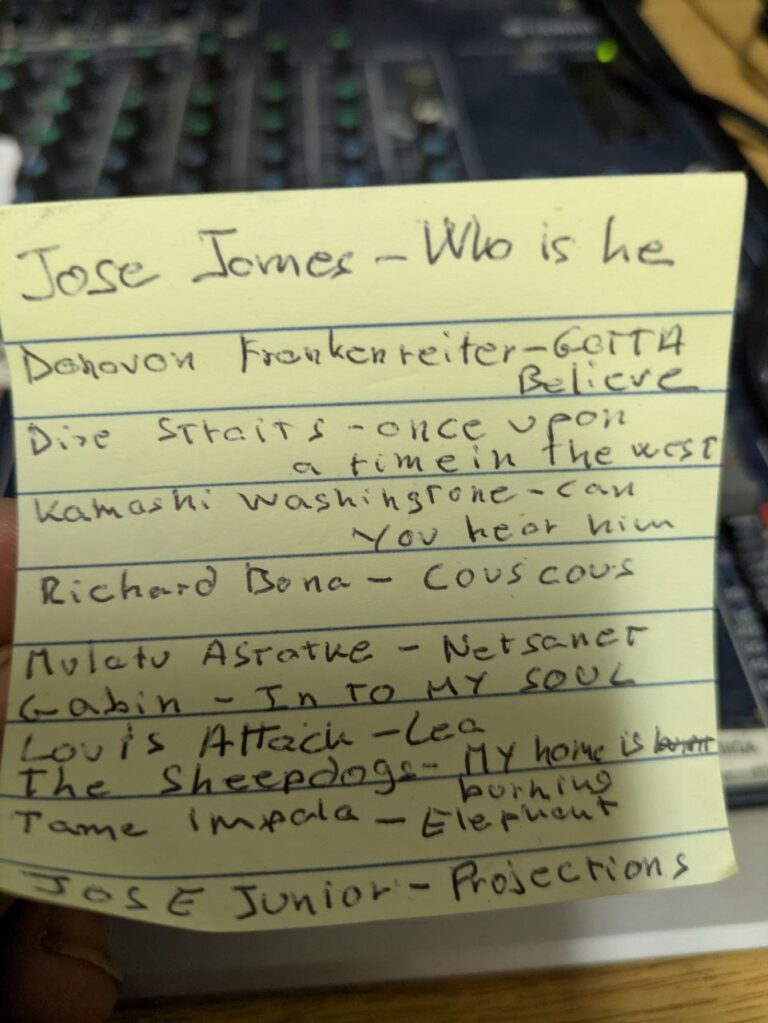 Jose James - Who is he
Donovon Frenkenreiter - GOTTA
Believe
Dire Straits - once upon
a time in the west
Kamashi Washingtone - can
You hear him
Richard Bona - Couscous
Mulatu Astatke - Netsanet
Gabin - In TO MY SOUL
Louis Attack - Lea
The Sheepdogs - MY home is
burning
Tame impala - Elephent
JOSE Junior - Projections